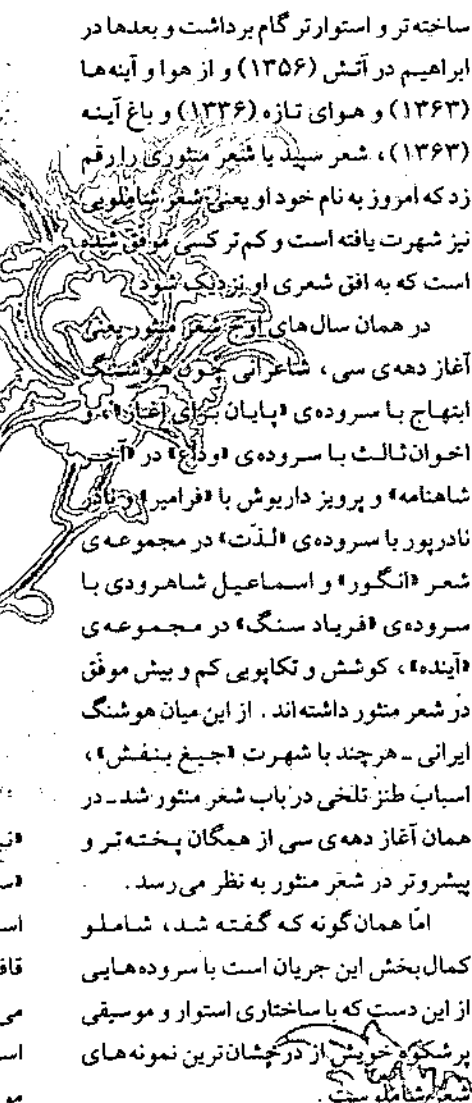 ساخته‌تر و استوارتر گام برداشت و بعدها در
ابراهیم در آتش (۱۳۵۶) و از هوا و آینه‌ها
(۱۳۶۳) و هوای تازه (۱۳۳۶) و باغ آینه
(۱۳۶۳)، شعر سپید یا شعر منثوری را رقم
زد که امروز به نام خود او یعنی شعر شاملویی
نیز شهرت یافته است و کم‌تر کسی موفق شده
است که به افق شعری او نزدیک شود.
در همان سال‌های اوج شعر منثور یعنی
آغاز دهه‌ی سی، شاعرانی چون هوشنگ
ابتهاج با سروده‌ی «پایان برای آغاز»، و
اخوان‌ثالث با سروده‌ی «وداع» در «آخر
شاهنامه» و پرویز داریوش با «فرامیر» و نادر
نادرپور با سروده‌ی «لذّت» در مجموعه‌ی
شعر «انگور» و اسماعیل شاهرودی با
سروده‌ی «فریاد سنگ» در مجموعه‌ی
«آینده»، کوشش و تکاپویی کم و بیش موفّق
در شعر منثور داشته‌اند. از این میان هوشنگ
ایرانی ـ هرچند با شهرت «جیغ بنفش»،
اسباب طنز تلخی در باب شعر منثور شد ـ در
همان آغاز دهه‌ی سی از همگان پخته‌تر و
پیشروتر در شعر منثور به نظر می‌رسد.
امّا همان‌گونه که گفته شد، شاملو
کمال‌بخش این جریان است با سروده‌هایی
از این دست که با ساختاری استوار و موسیقی
پرشکوه خویش از درخشان‌ترین نمونه‌های
شعر شاملوست.